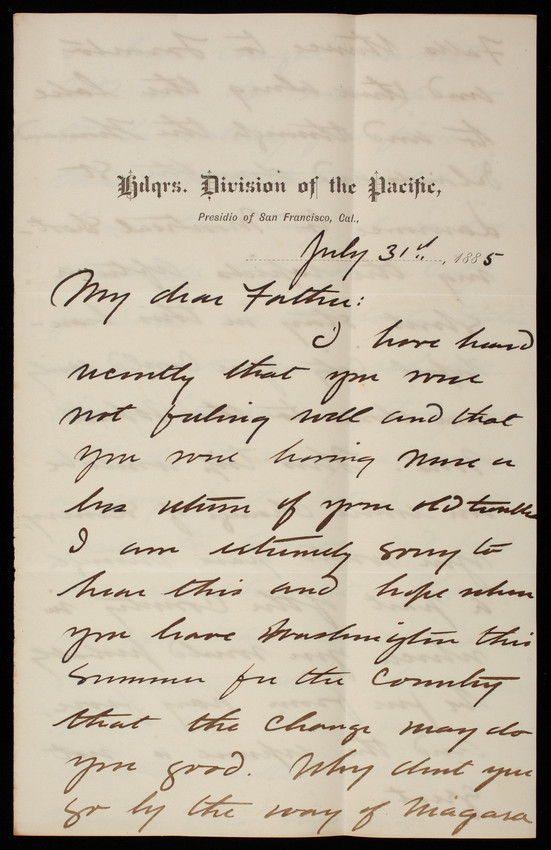 Hdqrs. Division of the Pacific,
Presidio of San Francisco, Cal.,
July 31st, 1885
My dear Father:
I have heard
recently that you were
not feeling well and that
you were having more or
less return of your old trouble
I am extremely sorry to
hear this and hope when
you leave Washington this
summer for the Country
that the change may do
you good. Why dont you
go by the way of Niagara